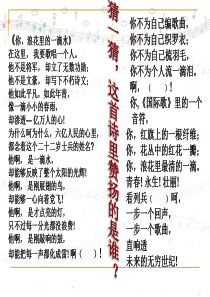 《你，浪花里的一滴水》
在这里，我要歌唱一个人，
他不是将军，却立了无数功勋；
他不是文豪，却写下不朽诗文；
他如此平凡，如此年青，
像一滴小小的春雨，
却渗透一亿万人的心！
为什么呵为什么，六亿人民的心里，
都念着这个二十二岁士兵的姓名？
他啊，是一滴水，
却能够反映了整个太阳的光辉！
他啊，是刚展翅的鸟，
却能够一心向着党飞！
他啊，是才点亮的灯，
只不过每一分光都没浪费！
他啊，是刚敲响的鼓，
却能把每一声都化成雷！（ ）！
猜一猜，这首诗里赞扬的是谁？
你不为自己编歌曲，
你不为自己织罗衣；
你不为自己梳羽毛，
你不为个人流一滴泪。
啊，（ ）！
你，《国际歌》里的一个音符，
你，红旗上的一根纤维；
你，花丛中的红花一瓣；
你，浪花里最清的一滴。
青春！永生！壮丽！
看列兵（ ）呵！
一步一个回声，
一步一个歌曲，
直响透
未来的无穷世纪！